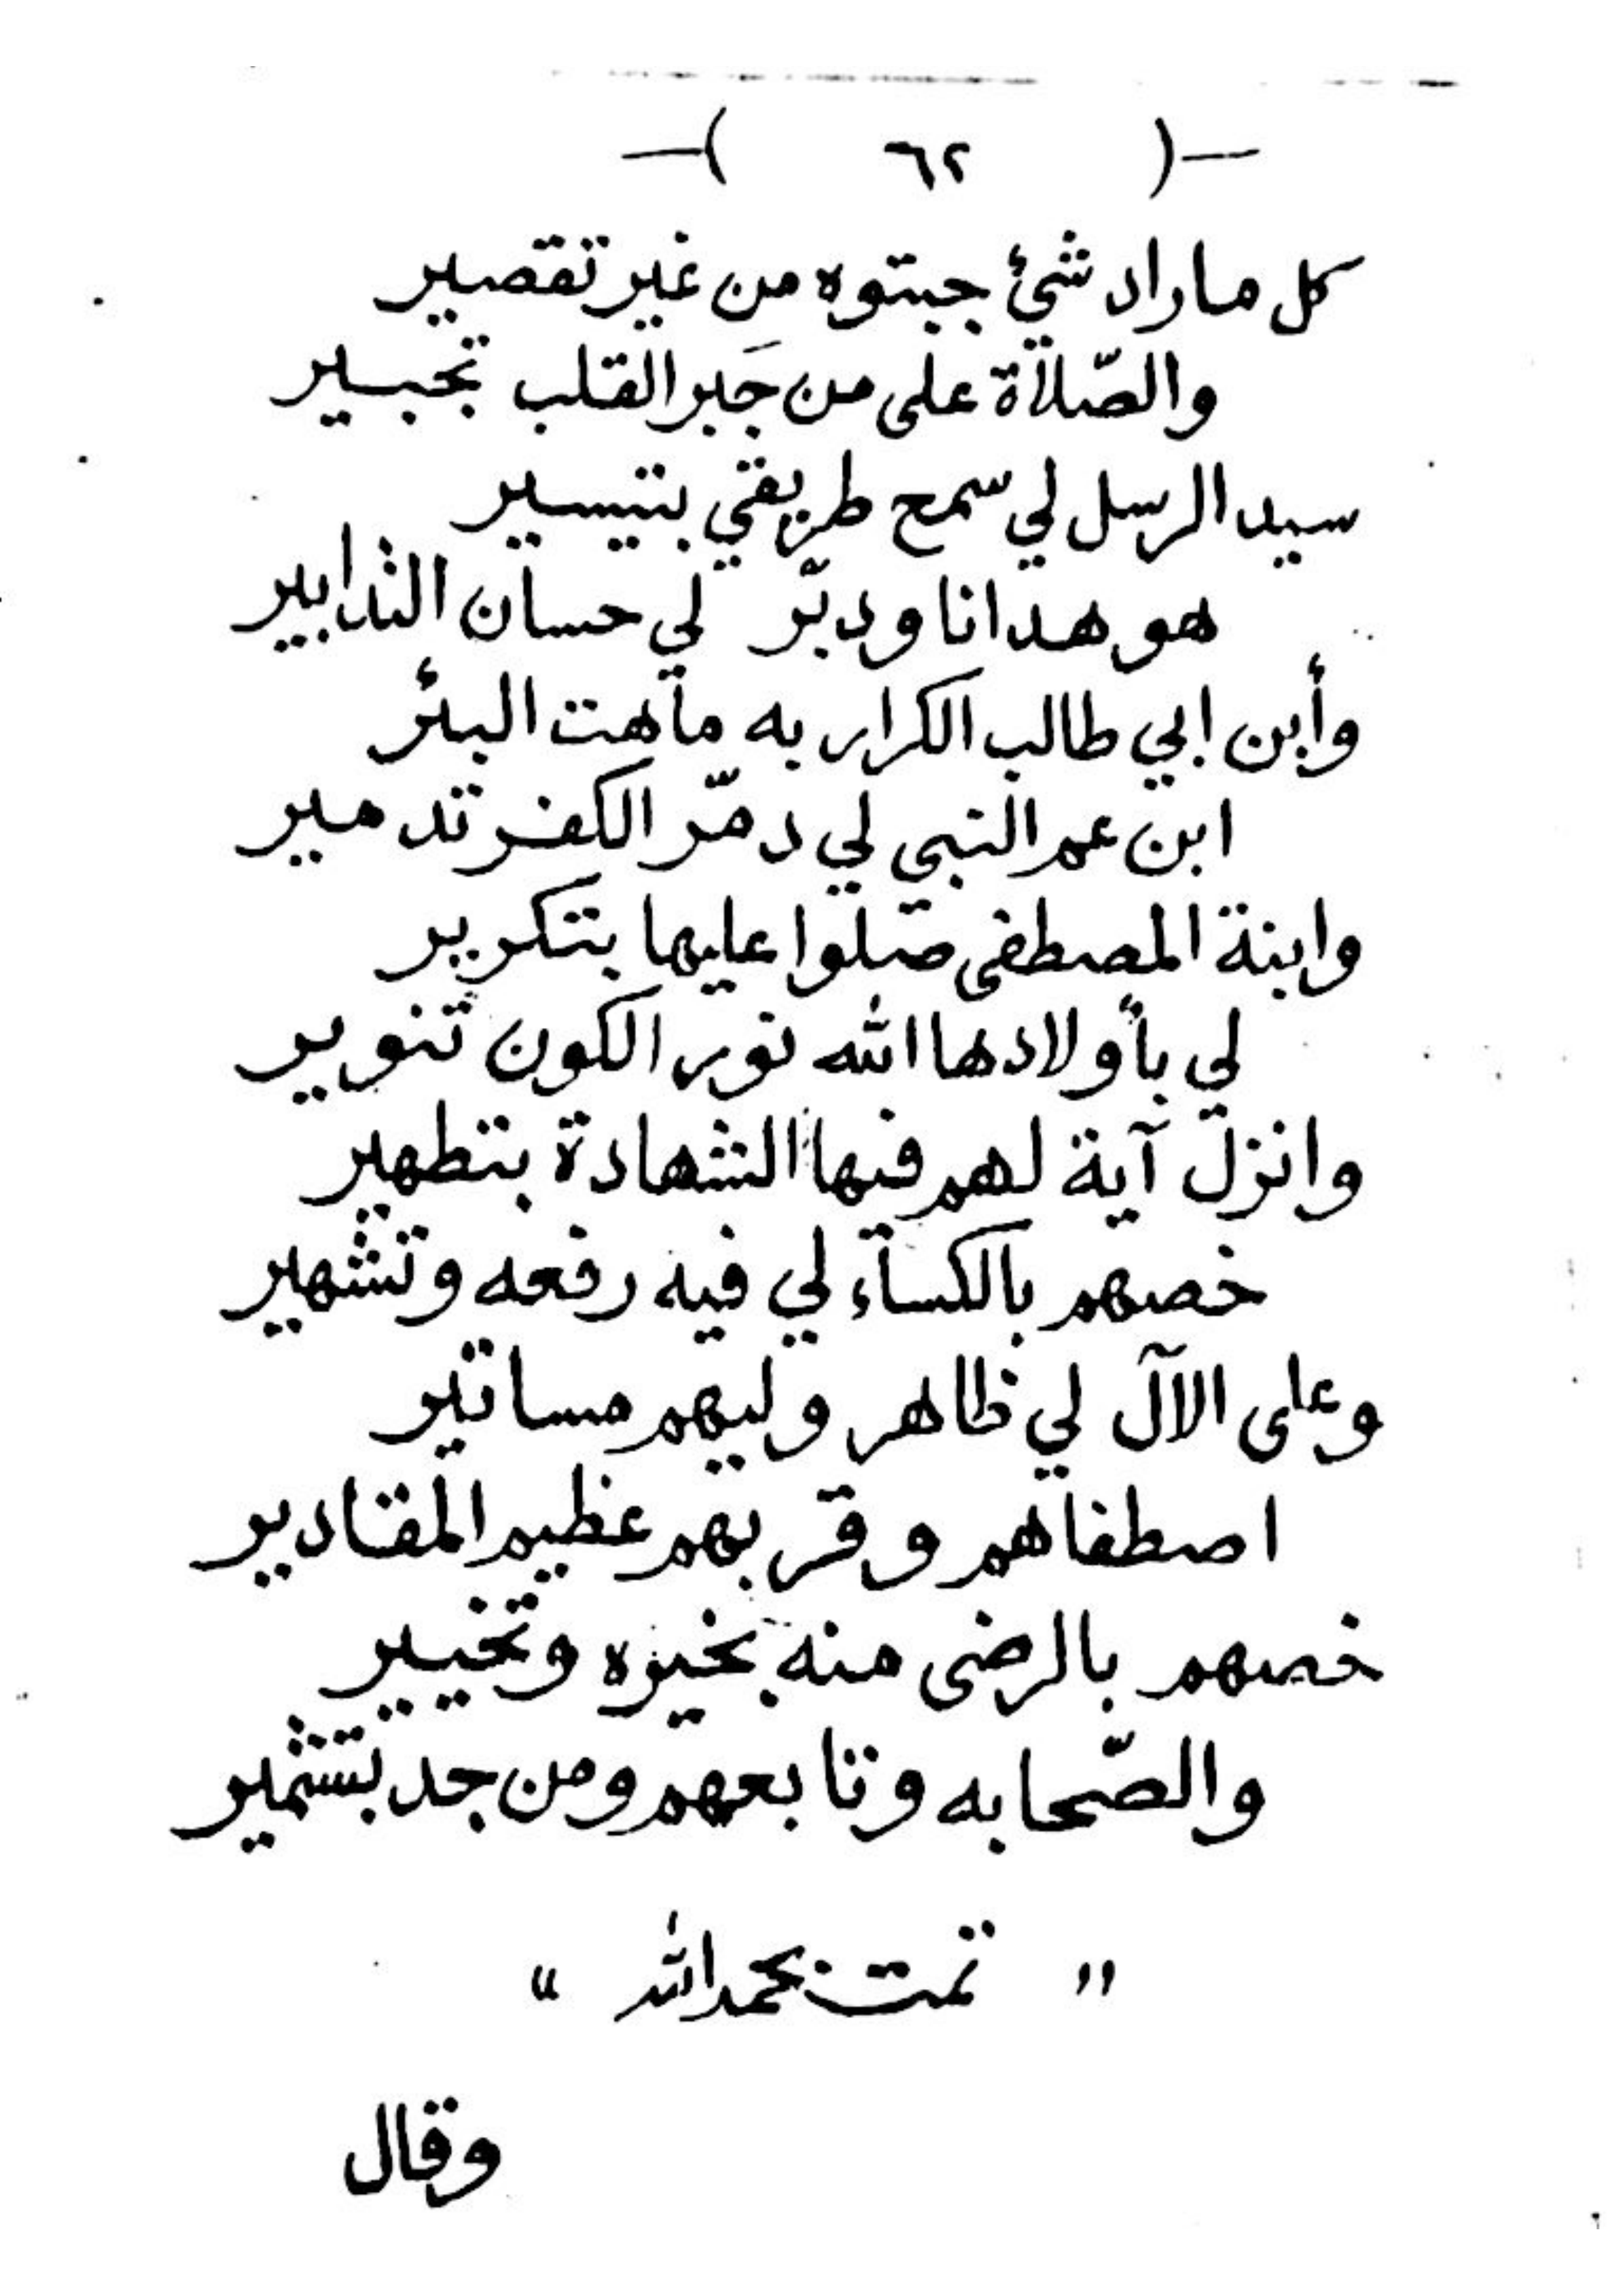 —( ٦٢ )—
كل ماراد شئ جبتوه من غير تقصير
والصّلاة على من جَبر القلب تجبير
سيد الرسل لي سمح طريقي بتيسير
هو هدانا ودبّر لي حسان التدابير
وأبن ابي طالب الكرار به ماهت البئر
ابن عم النبي لي دمّر الكفر تدمير
وابنة المصطفى صلوا عليها بتكرير
لي بأولادها الله نور الكون تنوير
وانزل آية لهم فيها الشهادة بتطهير
خصهم بالكسآء لي فيه رفعه وتشهير
وعلى الآل لي ظاهر وليهم مساتير
اصطفاهم وقربهم عظيم المقادير
خصهم بالرضى منه بخيره وتخيير
والصّحابه وتابعهم ومن جد بتشمير
" تمت بحمد الله "
وقال